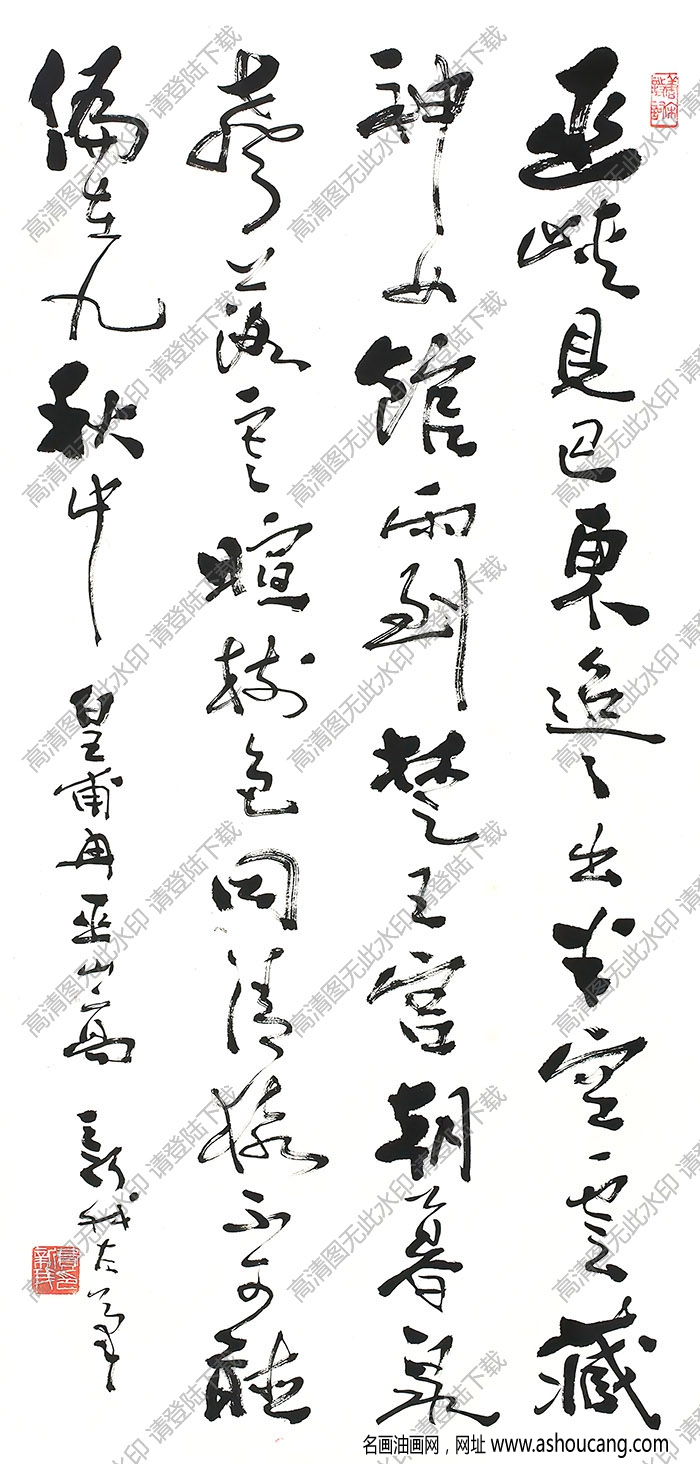 巫峡見巴東迢〻出半空雲藏
神女館雨到楚王宮朝暮泉
聲落寒暄樹色同清猿不可聽
偏在九秋中 皇甫冉巫山高 新我左筆
高清图无此水印 请登陆下载
名画油画网，网址 www.ashoucang.com